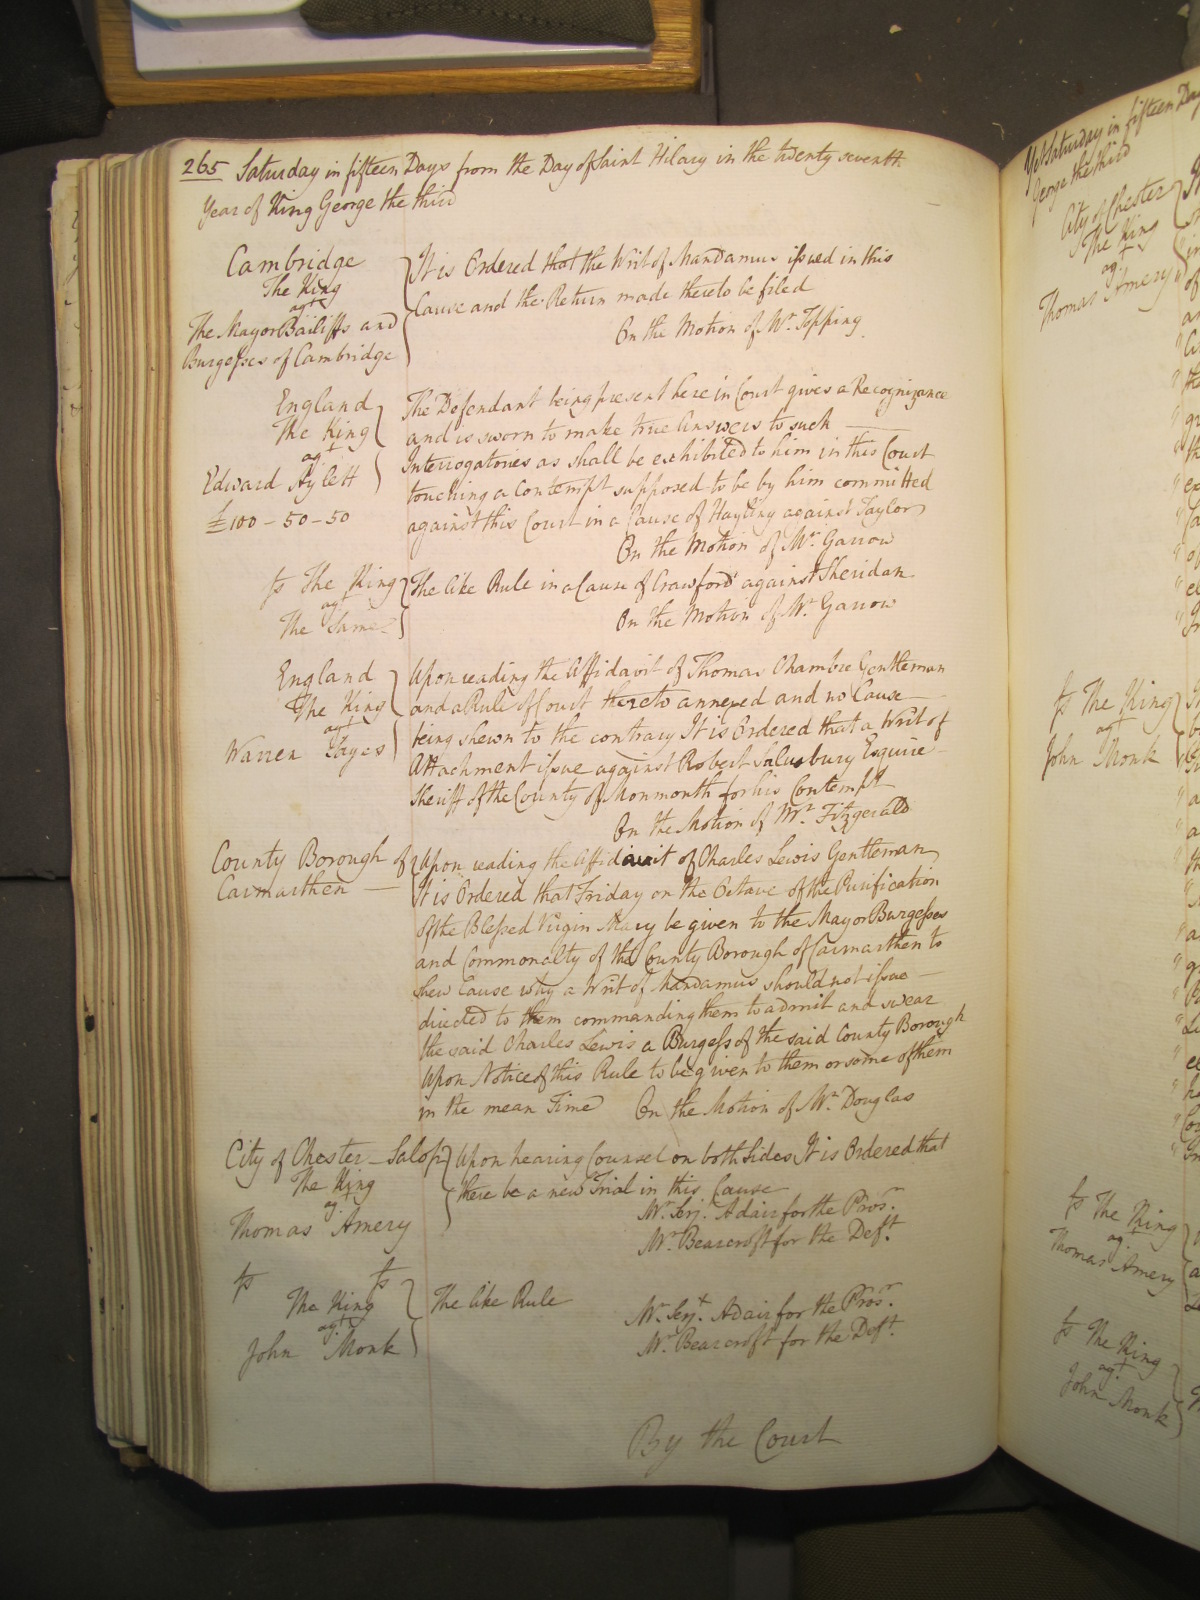 265 Saturday in fifteen Days from the Day of Saint Hilary in the twenty seventh
Year of King George the third
Cambridge
The King
agt
The Mayor Bailiffs and
Burgesses of Cambridge
It is Ordered that the Writ of Mandamus issued in this
Cause and the Return made thereto be filed
On the Motion of Mr. Topping
England
The King
agt
Edward Aylett
£100-50-50
The Defendant being present here in Court gives a Recognizance
and is sworn to make true Answers to such
Interrogatories as shall be exhibited to him in this Court
touching a Contempt supposed to be by him committed
against this Court in a Cause of Hayling against Taylor
On the Motion of Mr. Garrow
fs The King
agt
The Same
The like Rule in a Cause of Crawford against Sheridan
On the Motion of Mr. Garrow
England
The King
agt
Warren Jayes
Upon reading the Affidavit of Thomas Chambre Gentleman
and a Rule of Court thereto annexed and no Cause
being shewn to the contrary It is Ordered that a Writ of
Attachment issue against Robert Salusbury Esquire
Sheriff of the County of Monmouth for his Contempt
On the Motion of Mr. Fitzgerald
County Borough of
Carmarthen
Upon reading the Affidavit of Charles Lewis Gentleman
It is Ordered that Friday on the Octave of the Purification
of the Blessed Virgin Mary be given to the Mayor Burgesses
and Commonalty of the County Borough of Carmarthen to
shew Cause why a Writ of Mandamus should not issue
directed to them commanding them to admit and swear
the said Charles Lewis a Burgess of the said County Borough
Upon Notice of this Rule to be given to them or some of them
in the mean Time On the Motion of Mr. Douglas
City of Chester - Salop
The King
ag.
Thomas Amery
Upon hearing Counsel on both Sides It is Ordered that
there be a new Trial in this Cause
Mr. Serjt. Adair for the Prosr.
Mr. Bearcroft for the Deft.
fs fs
The King
agt
John Monk
The like Rule
Mr. Serjt. Adair for the Prosr.
Mr. Bearcroft for the Deft.
By the Court
Yet Saturday in fifteen Day
George the third
City of Chester
The King
agt.
Thomas Amery
fs The King
agt
John Monk
fs The King
ag.
Thomas Amery
fs The King
agt.
John Monk